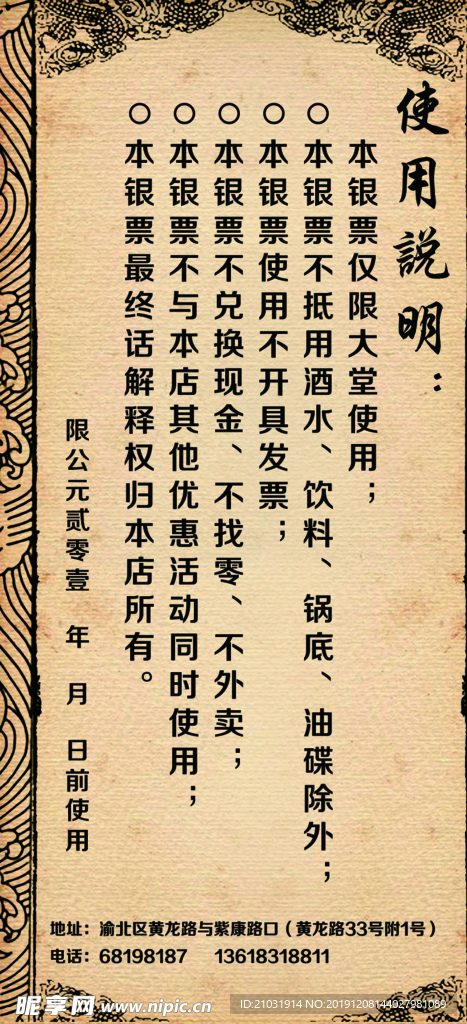 使用説明：
本银票仅限大堂使用；
○本银票不抵用酒水、饮料、锅底、油碟除外；
○本银票使用不开具发票；
○本银票不兑换现金、不找零、不外卖；
○本银票不与本店其他优惠活动同时使用；
○本银票最终话解释权归本店所有。
限公元贰零壹 年 月 日前使用
地址：渝北区黄龙路与紫康路口（黄龙路33号附1号）
电话：68198187 13618318811
昵享网 www.nipic.cn
ID:21031914 NO:20191208144927981089